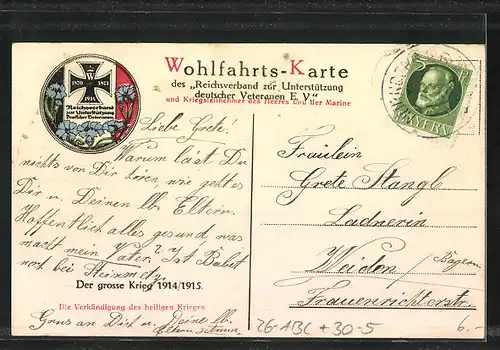 Wohlfahrts-Karte
des „Reichsverband zur Unterstützung
deutscher Veteranen E. V“
und Kriegsteilnehmer des Heeres und der Marine
1870 1871
W
1914
Reichsverband
zur Unterstützung
Deutscher Veteranen
5
BAYERN
Liebe Grete!
Warum läßt Du
nichts von Dir hören, wie geht es
Dir u. Deinen lb. Eltern.
Hoffentlich alles gesund, was
macht mein Vater? Ist Babet
noch bei
Der grosse Krieg 1914/1915.
Die Verkündigung des heiligen Krieges
Gruss an Dich u. Deine lb.
Eltern
Fräulein
Grete Stangl
Ladnerin
Weiden/
Bayern
Frauenrichterstr.
26-ABC +30-5
6.-